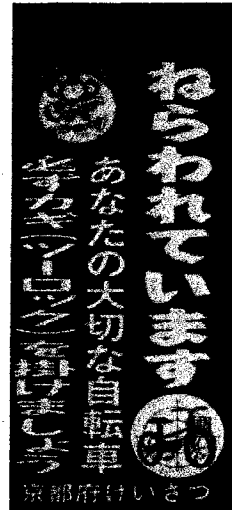 ねらわれています
あなたの大切な自転車
必ずカギ(ツーロック)を掛けましょう
京都府けいさつ